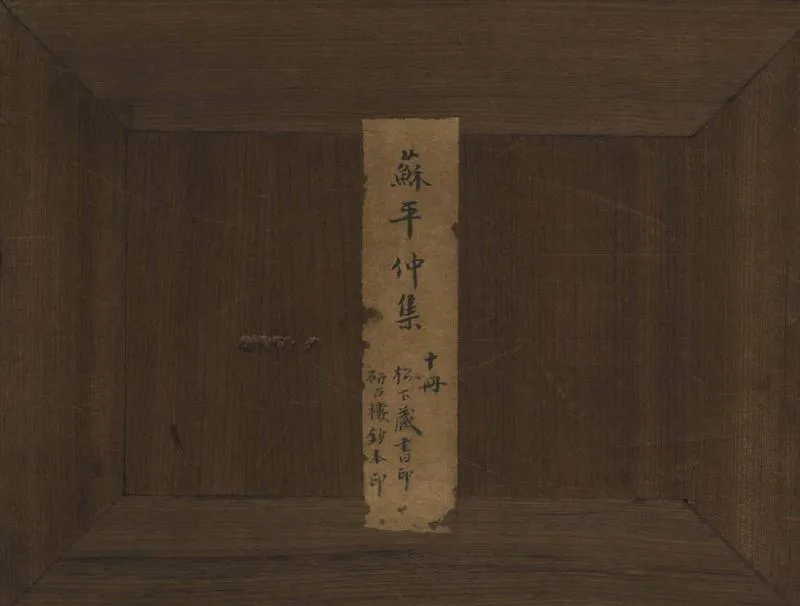 蘇平仲集
十冊
松下藏書印
研古樓鈔本印